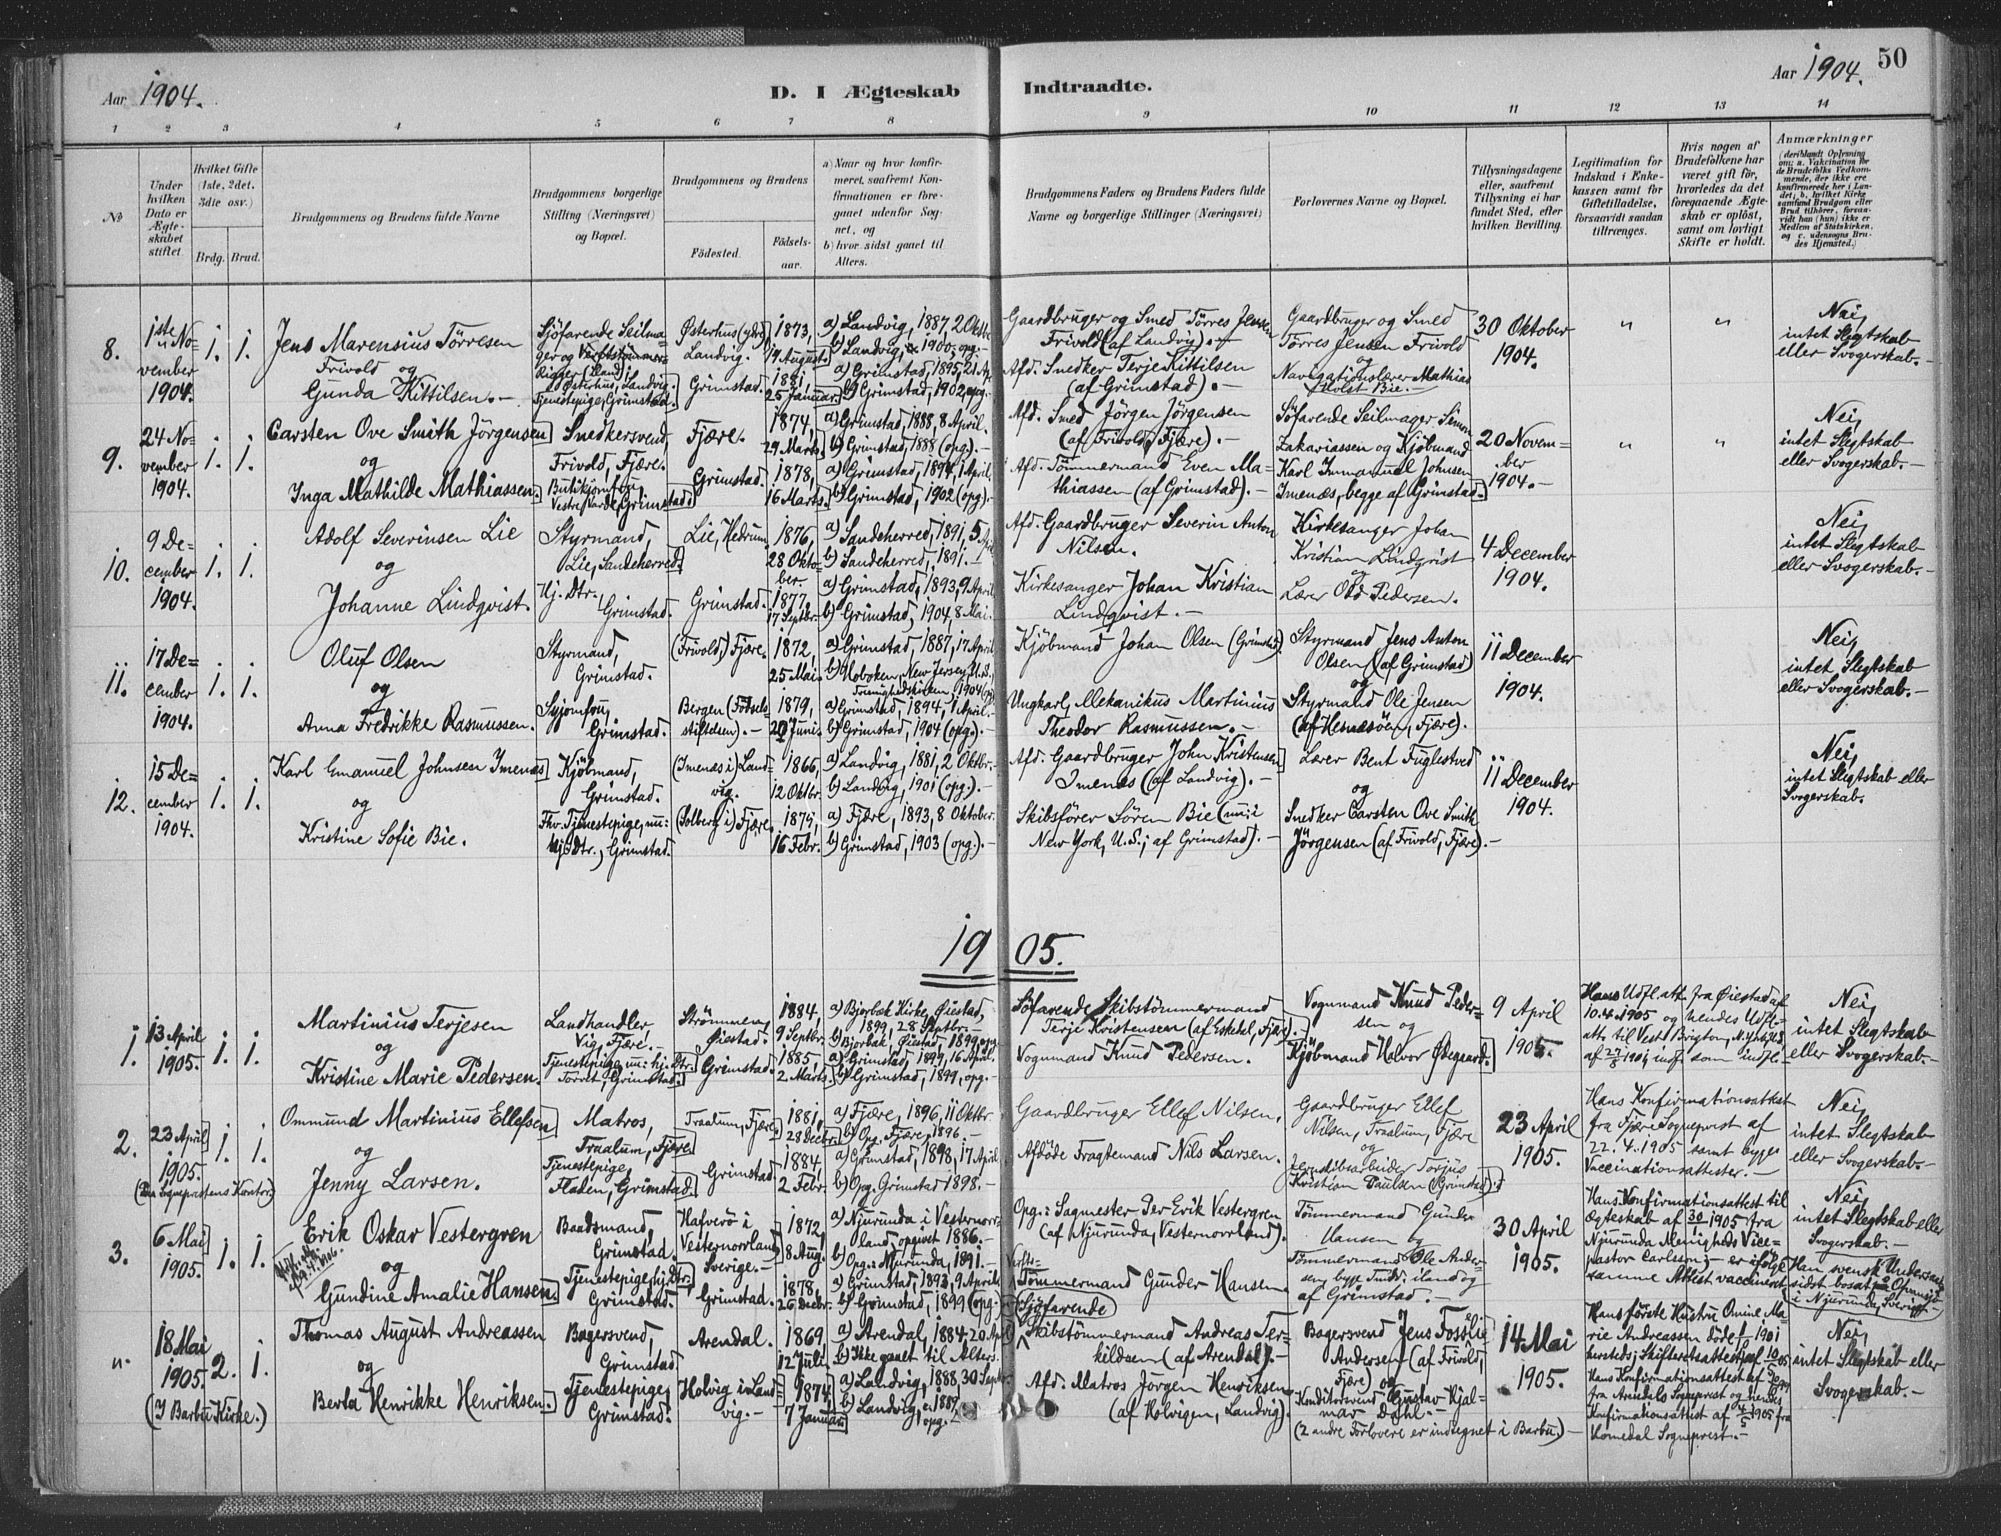 Aar 1904.
D. I Ægteskab Indtraadte.
Aar 1904.
50
1 2 3 4 5 6 7 8 9 10 11 12 13 14
No
Under hvilken Dato er Ægteskabet stiftet
Hvilket Gifte (1ste, 2det, 3die osv.)
Brdg. Brud.
Brudgommens og Brudens fulde Navne
Brudgommens borgerlige Stilling (Næringsvei) og Bopæl.
Brudgommens og Brudens
Födested.
Födselsaar.
a) Naar og hvor konfirmeret, saafremt Konfirmationen er foregaaet udenfor Sognet, og
b) hvor sidst gaaet til Alters.
Brudgommens Faders og Brudens Faders fulde Navne og borgerlige Stillinger (Næringsvei)
Forlovernes Navne og Bopæl.
Tillysningsdagene eller, saafremt Tillysning ei har fundet Sted, efter hvilken Bevilling.
Legitimation for Indskud i Enkekassen samt for Giftetilladelse, forsaavidt saadan tiltrænges.
Hvis nogen af Brudefolkene har været gift för, hvorledes da det foregaaende Ægteskab er oplöst, samt om lovligt Skifte er holdt.
Anmærkninger
(deriblandt Oplysning om: a. Vakcination for de Brudefolks Vedkommende, der ikke ere konfirmerede her i Landet; b. hvilket Kirkesamfund Brudgom eller Brud tilhörer, forsaavidt han (hun) ikke er Medlem af Statskirken, og c. udensogns Brudes Hjemsted.)
8.
1ste November 1904.
1. 1.
Jens Marensius Törresen Frivold og
Gunda Kittilsen.-
Sjöfarende Seilmager og
Rigger (iland)
Österhus, Landvig.
Tjenestepige, Grimstad.
Østerhus (ydre) Landvig.
Grimstad.
1873, 19 August.
1881, 25 Januar.
a) Landvig, 1887, 2 Oktbr
b) Landvig, 1900, opg.-
a) Grimstad, 1895, 21 Ap.
b) Grimstad, 1902, opg.-
Gaardbruger og Smed Törres Jensen
Frivold (af Landvig).-
Afd. Snedker Terje Kittilsen
(af Grimstad).-
Gaardbruger og Smed
Törres Jensen Frivold
og
Navigationslærer Mathias
Holst Bie.
30 Oktober
1904.
" "
Nei,
intet Slegtskab
eller Svogerskab.-
9.
24 November 1904.
1. 1.
Carsten Ove Smith Jörgensen
og
Inga Mathilde Mathiassen.
Snedkersvend,
Frivold, Fjære.
Butikjomfru,
Vestre Varde, Grimstad.
Fjære.
Grimstad.
1874, 29 Marts.
1878, 16 Marts.
a) Grimstad, 1888, 8 April.
b) Grimstad, 1888 (opg.).-
a) Grimstad, 1894, 1 April.
b) Grimstad, 1902 (opg.).-
Afd. Smed Jörgen Jörgensen
(af Frivold, Fjære).-
Afd. Tömmermand Even Mathiassen (af Grimstad).-
Söfarende Seilmager Simon
Zakariassen og Kjöbmand
Karl Immanuel Johnsen
Imenæs, begge af Grimstad.
20 November
1904.-
" "
Nei,
intet Slegtskab
eller Svogerskab.-
10.
9 December 1904.
1. 1.
Adolf Severinsen Lie
og
Johanne Lindqvist.
Styrmand,
Lie, Sandeherred.
Hj. Dtr.
Grimstad.
Lie, Hedrum.
Grimstad.
1876, 28 Oktober.
1877, 17 Septbr.
a) Sandeherred, 1891, 5 April
b) Sandeherred, 1891.-
a) Grimstad, 1893, 9 April.
b) Grimstad, 1904, 8 Mai.
Afd. Gaardbruger Severin Anton
Nilsen.
Kirkesanger Johan Kristian
Lindqvist.-
Kirkesanger Johan
Kristian Lindqvist
og
Lærer Old Pedersen.
4 December
1904.
Nei,
intet Slegtskab
eller Svogerskab.-
11.
17 December 1904.
1. 1.
Oluf Olsen
og
Anna Fredrikke Rasmussen.
Styrmand,
Grimstad.
Syjomfru,
Grimstad.
(Frivold,) Fjære.
Bergen (Födselsstiftelsen).-
1872, 25 Mai.
1879, 20 Juni.
a) Grimstad, 1887, 17 April
b) Hoboken, New Jersey, U.S.,
Treenighedskirken, 1904 (opg.)
a) Grimstad, 1894, 1 April.-
b) Grimstad, 1904 (opg.).-
Kjöbmand Johan Olsen (Grimstad)
Ungkarl, Mekanikus Martinius
Theodor Rasmussen.-
Styrmand Jens Anton
Olsen (af Grimstad)
og
Styrmand Ole Jensen
(af Hesnæsöen, Fjære).
11 December
1904.
Nei,
intet Slegtskab
eller Svogerskab.-
12.
15 December 1904.
1. 1.
Karl Emanuel Johnsen Imenæs
og
Kristine Sofie Bie.
Kjöbmand,
Grimstad.
Fhv. Tjenestepige, nu:
Hj. Dtr., Grimstad.
(Imenæs i) Landvig.
(Solberg i) Fjære.
1866, 12 Oktbr.
1879, 16 Febr.
a) Landvig, 1881, 2 Oktbr.-
b) Landvig, 1901 (opg.).-
a) Fjære, 1893, 8 Oktober.
b) Grimstad, 1903 (opg.).-
Afd. Gaardbruger John Kristensen
Imenæs (af Landvig).-
Skibsförer Sören Bie (nu: i
New York, U.S.; af Grimstad).-
Lærer Bent Fuglestved
og
Snedker Carsten Ove Smith
Jörgensen (af Frivold, Fjære).-
11 December
1904.
Nei,
intet Slegtskab eller
Svogerskab.
1905.
1.
13 April 1905.
1. 1.
Martinius Terjesen
og
Kristine Marie Pedersen.
Landhandler,
Vig, Fjære.-
Tjenestepige, nu: hj. Dtr.
Torvet, Grimstad.
Strömmen, Øiestad.
Grimstad.
1884, 9 Septbr.
1885, 2 Marts.
a) Bjorbæk Kirke, Øiestad,
1899, 28 Septbr.-
b) Bjorbæk, Øiestad, 1899, opg.
a) Grimstad, 1899, 16 April.
b) Grimstad, 1899, opg.-
Söfarende Skibstömmermand
Terje Kristensen (af Eskedal, Fjære).
Vognmand Knud Pedersen.
Vognmand Knud Pedersen og
Kjöbmand Halvor Ødegaard.
9 April
1905.
Hans Udfl. att. fra Øiestad af
10.4.1905 og hendes Udfl.
att. til Vest Brigton, N.Y.
Nei,
intet Slegtskab
eller Svogerskab.-
2.
23 April 1905.
(Paa Sognepræstens Kontor.)
1. 1.
Ommund Martinius Ellefsen
og
Jenny Larsen.
Matros,
Traalum, Fjære.
Tjenestepige,
Fladen, Grimstad.
Traalum, Fjære.
Grimstad.
1881, 28 Decbr.
1884, 2 Febr.
a) Fjære, 1896, 11 Oktbr.
b) Opg. Fjære, 1896.-
a) Grimstad, 1898, 17 April.
b) Opg. Grimstad 1898.-
Gaardbruger Ellef Nilsen.
Afdöde Fragtemand Nils Larsen.
Gaardbruger Ellef
Nilsen, Traalum, Fjære
og
Jernskibsarbeider Torjus
Kristian Paulsen (Grimstad).
23 April
1905.
Hans Konfirmationsattest
fra Fjære Sognepræst af
22.4.1905 samt begges
Vaccinationsattester.-
Nei,
intet Slegtskab
eller Svogerskab.-
3.
6 Mai 1905.
1. 1.
Erik Oskar Vestergren
og
Gundine Amalie Hansen.
Baadsmand,
Grimstad.
Tjenestepige, (hj. Dtr.)
Grimstad.
Hafverö i Vesternorrland, Sverige.-
Grimstad.
1872, 8 Aug.
1878, 26 Decbr.
a) Njurunda i Vesternorrland, opgivet 1886.-
b) Opg.: Njurunda, 1891.-
a) Grimstad, 1893, 9 April.
b) Grimstad, 1899 (opg.)
Opg.: Sagmester Per Erik Vestergren
(af Njurunda, Vesternorrland).
Verfts-
Tömmermand Gunder Hansen.
Tömmermand Gunder
Hansen og
Tömmermand Ole Andersen, begge iland og
af Grimstad.-
30 April
1905.
Hans Konfirmationsattest til
Ægteskab af 30/1 1905 fra
Njurunda Menigheds Vicepastor Carlsson;- er ifölge
samme Attest vaccineret
Nei,
intet Slegtskab eller
Svogerskab.-
Han svensk Undersaat,
sidst bosat
i Njurunda, Sverige.-
"
18 Mai 1905.
(I Barbu Kirke.)
2. 1.
Thomas August Andreassen
og
Berta Henrikke Henriksen.
Bagersvend,
Grimstad.
Tjenestepige,
Grimstad.
Arendal.
Holvig i Landvig.-
1869, 12 Juli.
1874, 7 Januar.
a) Arendal, 1884, 20 April
b) Ikke gaaet til Alters.
a) Landvig, 1888, 30 Septbr.
b) Landvig, 1889, opg.
Sjöfarende
Skibstömmermand Andreas Terkildsen (af Arendal).-
Afd. Matros Jörgen Henriksen
(af Holvigen, Landvig).
Bagersvend Jens Fosslie
Andersen (af Frivold,
Fjære) og
Konditorsvend Gustav Hjalmar Dahl.-
(2 andre Forlovere er indtegnet i Barbu.)-
14 Mai
1905.
Hans förste Hustru Omine Marie Andreassen döde 1901
Skifteretsattest af 10/5 05
Hans Konfirmationsattest af
fra Arendals Sognepræst og hendes
Konfirmationsattest af 4/5 1905 fra
Homedal Sognepræst.-
Nei,
intet Slegtskab eller
Svogerskab.-